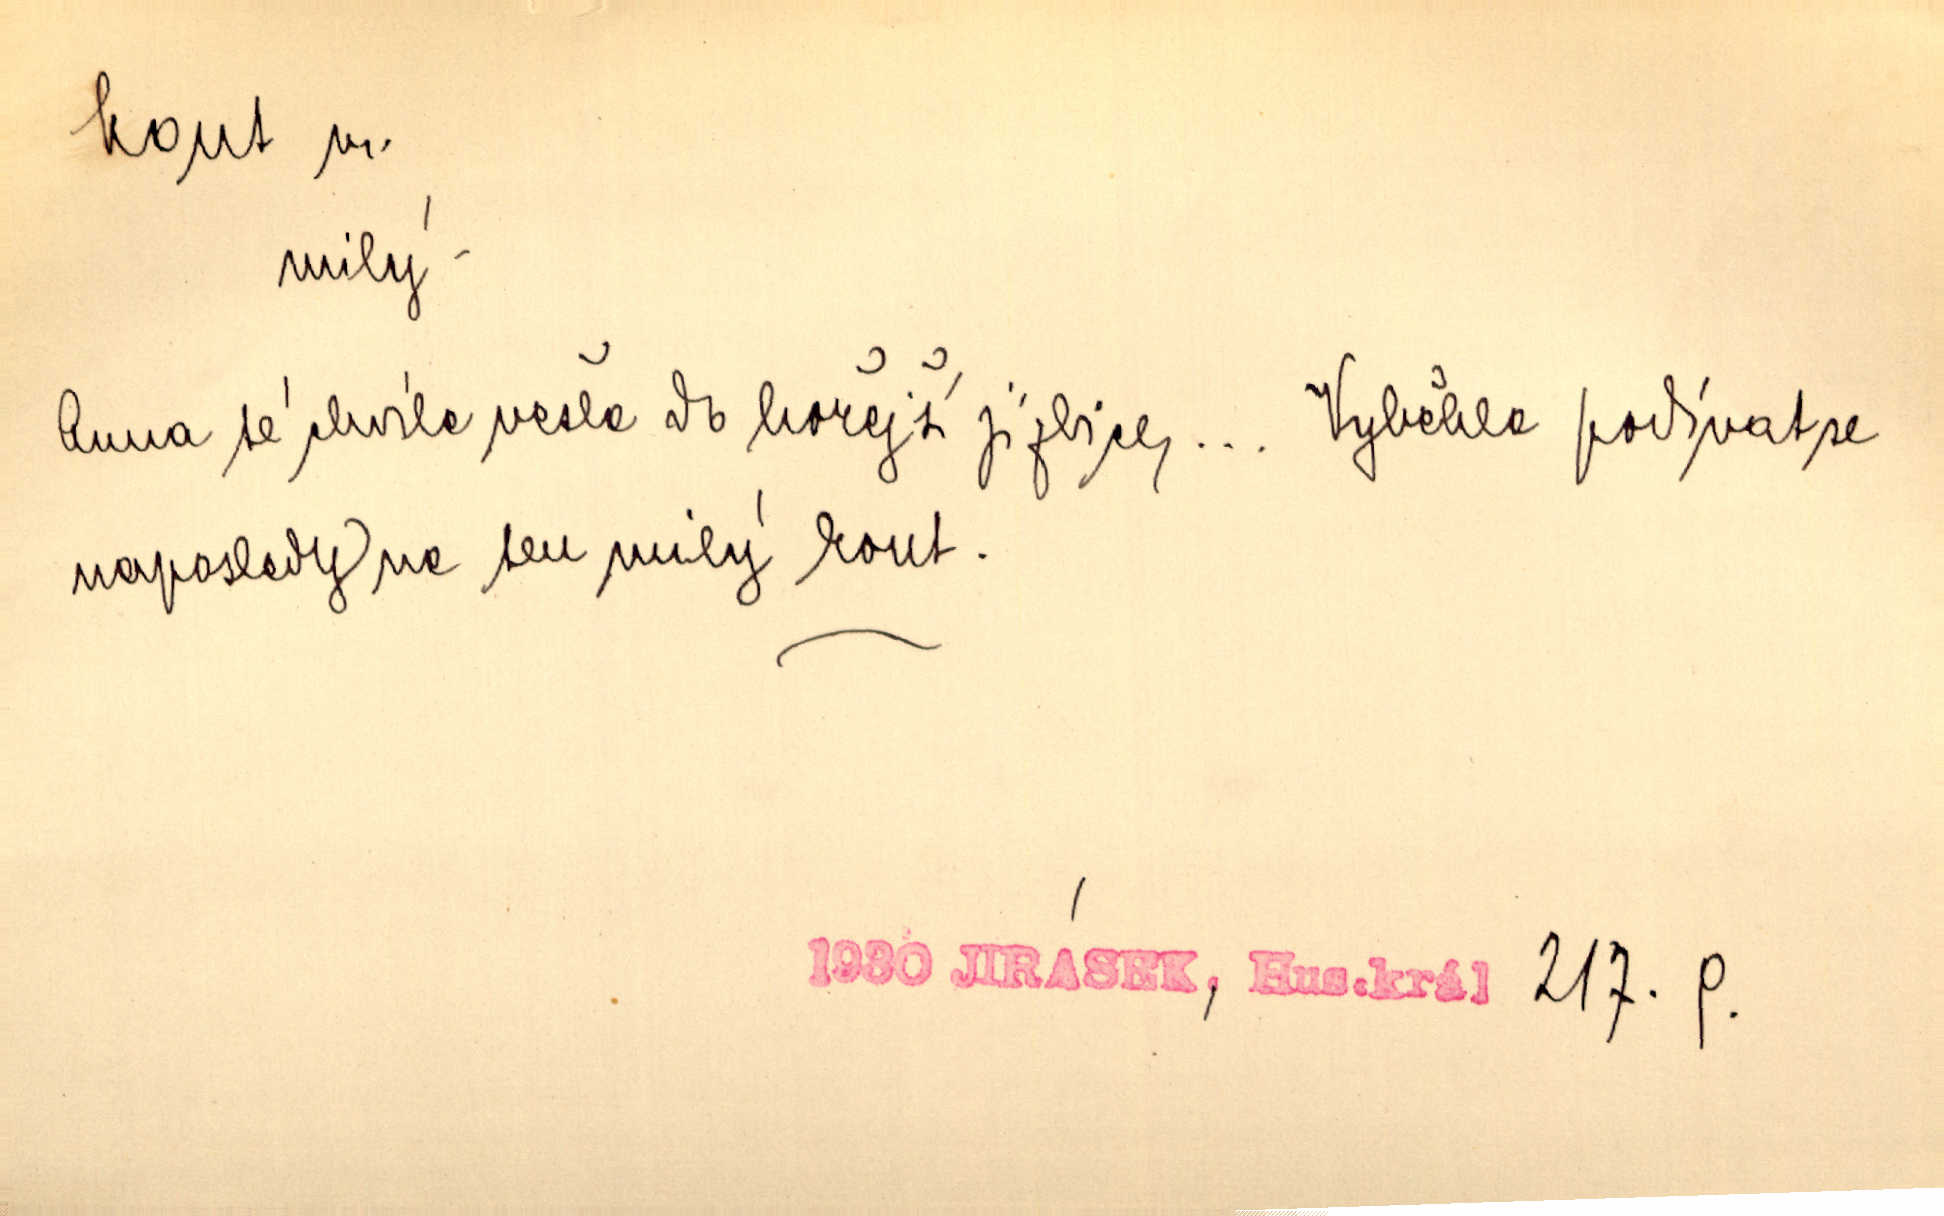 kout m.
milý -
Anna té chvíle vešla do hořejší jizbice, ... Vyběhla podívat se
naposledy na ten milý kout.
1930 JIRÁSEK, Hus.král 217. p.